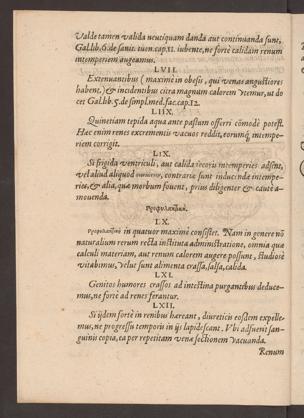 Valde tamen valida neutiquam danda aut continuanda sunt,
Gal. lib. 6. de sanit. tuen. cap. 11. iubente, ne fortè calidam renum
intemperiem augeamus.
LVII.
Extenuantibus (maximè in obesis, qui venas angustiores
habent,) & incidentibus citra magnum calorem vtemur, ut do
cet Gal. lib. 5. de simpl. med. fac. cap. 12.
LIIX.
Quinetiam tepida aqua ante pastum offerri cõmodè potest.
Hæc enim renes excrementis vacuos reddit, eorumq́; intempe-
riem corrigit.
LIX.
Si frigida ventriculi, aut calida iecoris intemperies adsint,
vel aliud aliquod contraria sunt inducinde intempe-
ries, & alia, quæ morbum fouent, prius diligenter & cautè a-
mouenda.
Προφυλακτικὴ.
LX.
Προφυλακτικὴ in quatuor maximè consistet. Nam in genere nõ
naturalium rerum recta instituta administratione, omnia quæ
calculi materiam, aut renum calorem augere possunt, studiosè
vitabimus, velut sunt alimenta crassa, salsa, calida.
LXI.
Genitos humores crassos ad intestina purgantibus deduce-
mus, ne fortè ad renes ferantur.
LXII.
Si ijdem fortè in renibus hæreant, diureticis eosdem expelle-
mus, ne progressu temporis in ijs lapidescant. Vbi adfuerit san-
guinis copia, ea per repetitam venæ sectionem vacuanda.
Renum